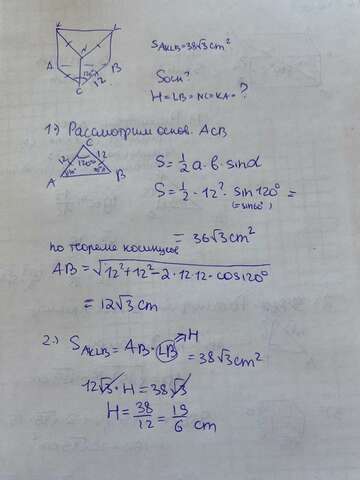 K L
N
A B
120°
12
C
S_AKLB = 38√3 cm²
Sосн?
H = LB = NC = KA = ?
1) Рассмотрим основ. ACB
C
12 120° 12
A B
S = 1/2 a · b · sinα
S = 1/2 · 12² · sin 120° =
(= sin60°)
= 36√3 cm²
по теореме косинусов
AB = √12² + 12² - 2 · 12 · 12 · cos 120°
= 12√3 cm
2) S_AKLB = AB · LB → H
= 38√3 cm²
12√3 · H = 38√3
H = 38/12 = 19/6 cm